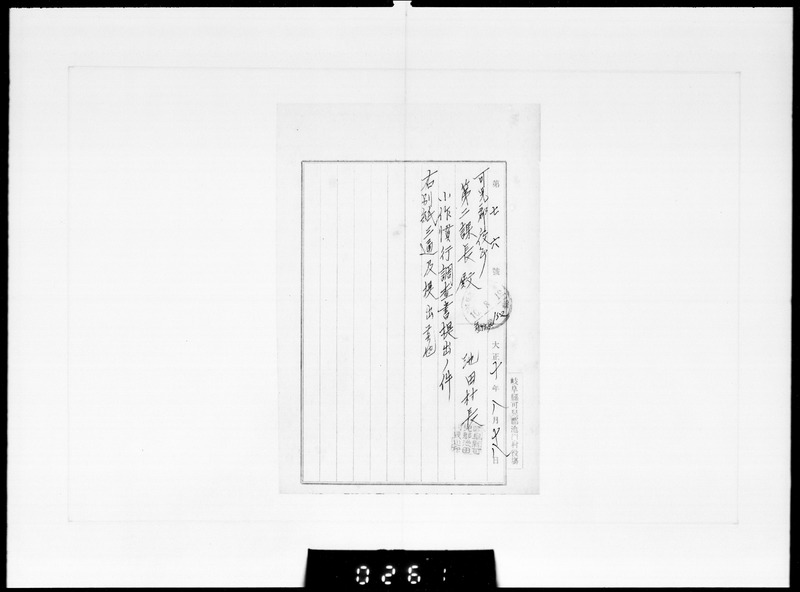 第七六號 大正十年八月十八日
可児郡役所
第二課長殿
池田村長
小作慣行調査書提出ノ件
右別紙三通及提出候也
岐阜縣可児郡池田村役場
0261